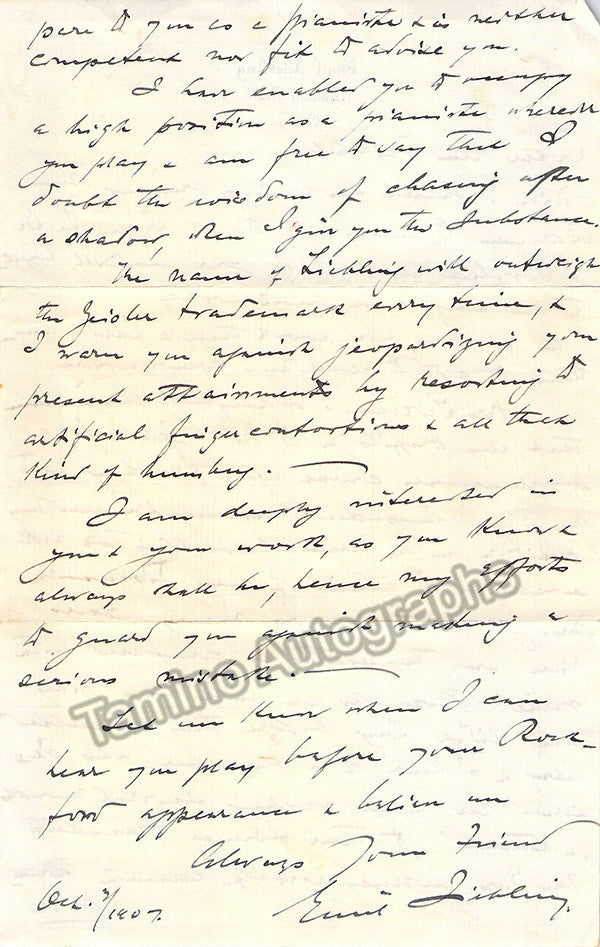 pare to you as a pianiste & is neither
competent nor fit to advise you.
I have enabled you to occupy
a high position as a pianiste wherever
you play & am free to say that I
doubt the wisdom of chasing after
a shadow, when I give you the substance.
The name of Liebling will outweigh
the Zeisler trademark every time, &
I warn you against jeopardizing your
present attainments by resorting to
artificial finger contortions & all that
kind of humbug. —
I am deeply interested in
you & your work, as you know &
always shall be, hence my efforts
to guard you against making a
serious mistake. —
Let me know when I can
hear you play before your Rock-
ford appearance & believe me
Always Your Friend
Oct. /1907. Emil Liebling.
Tamino Autographs